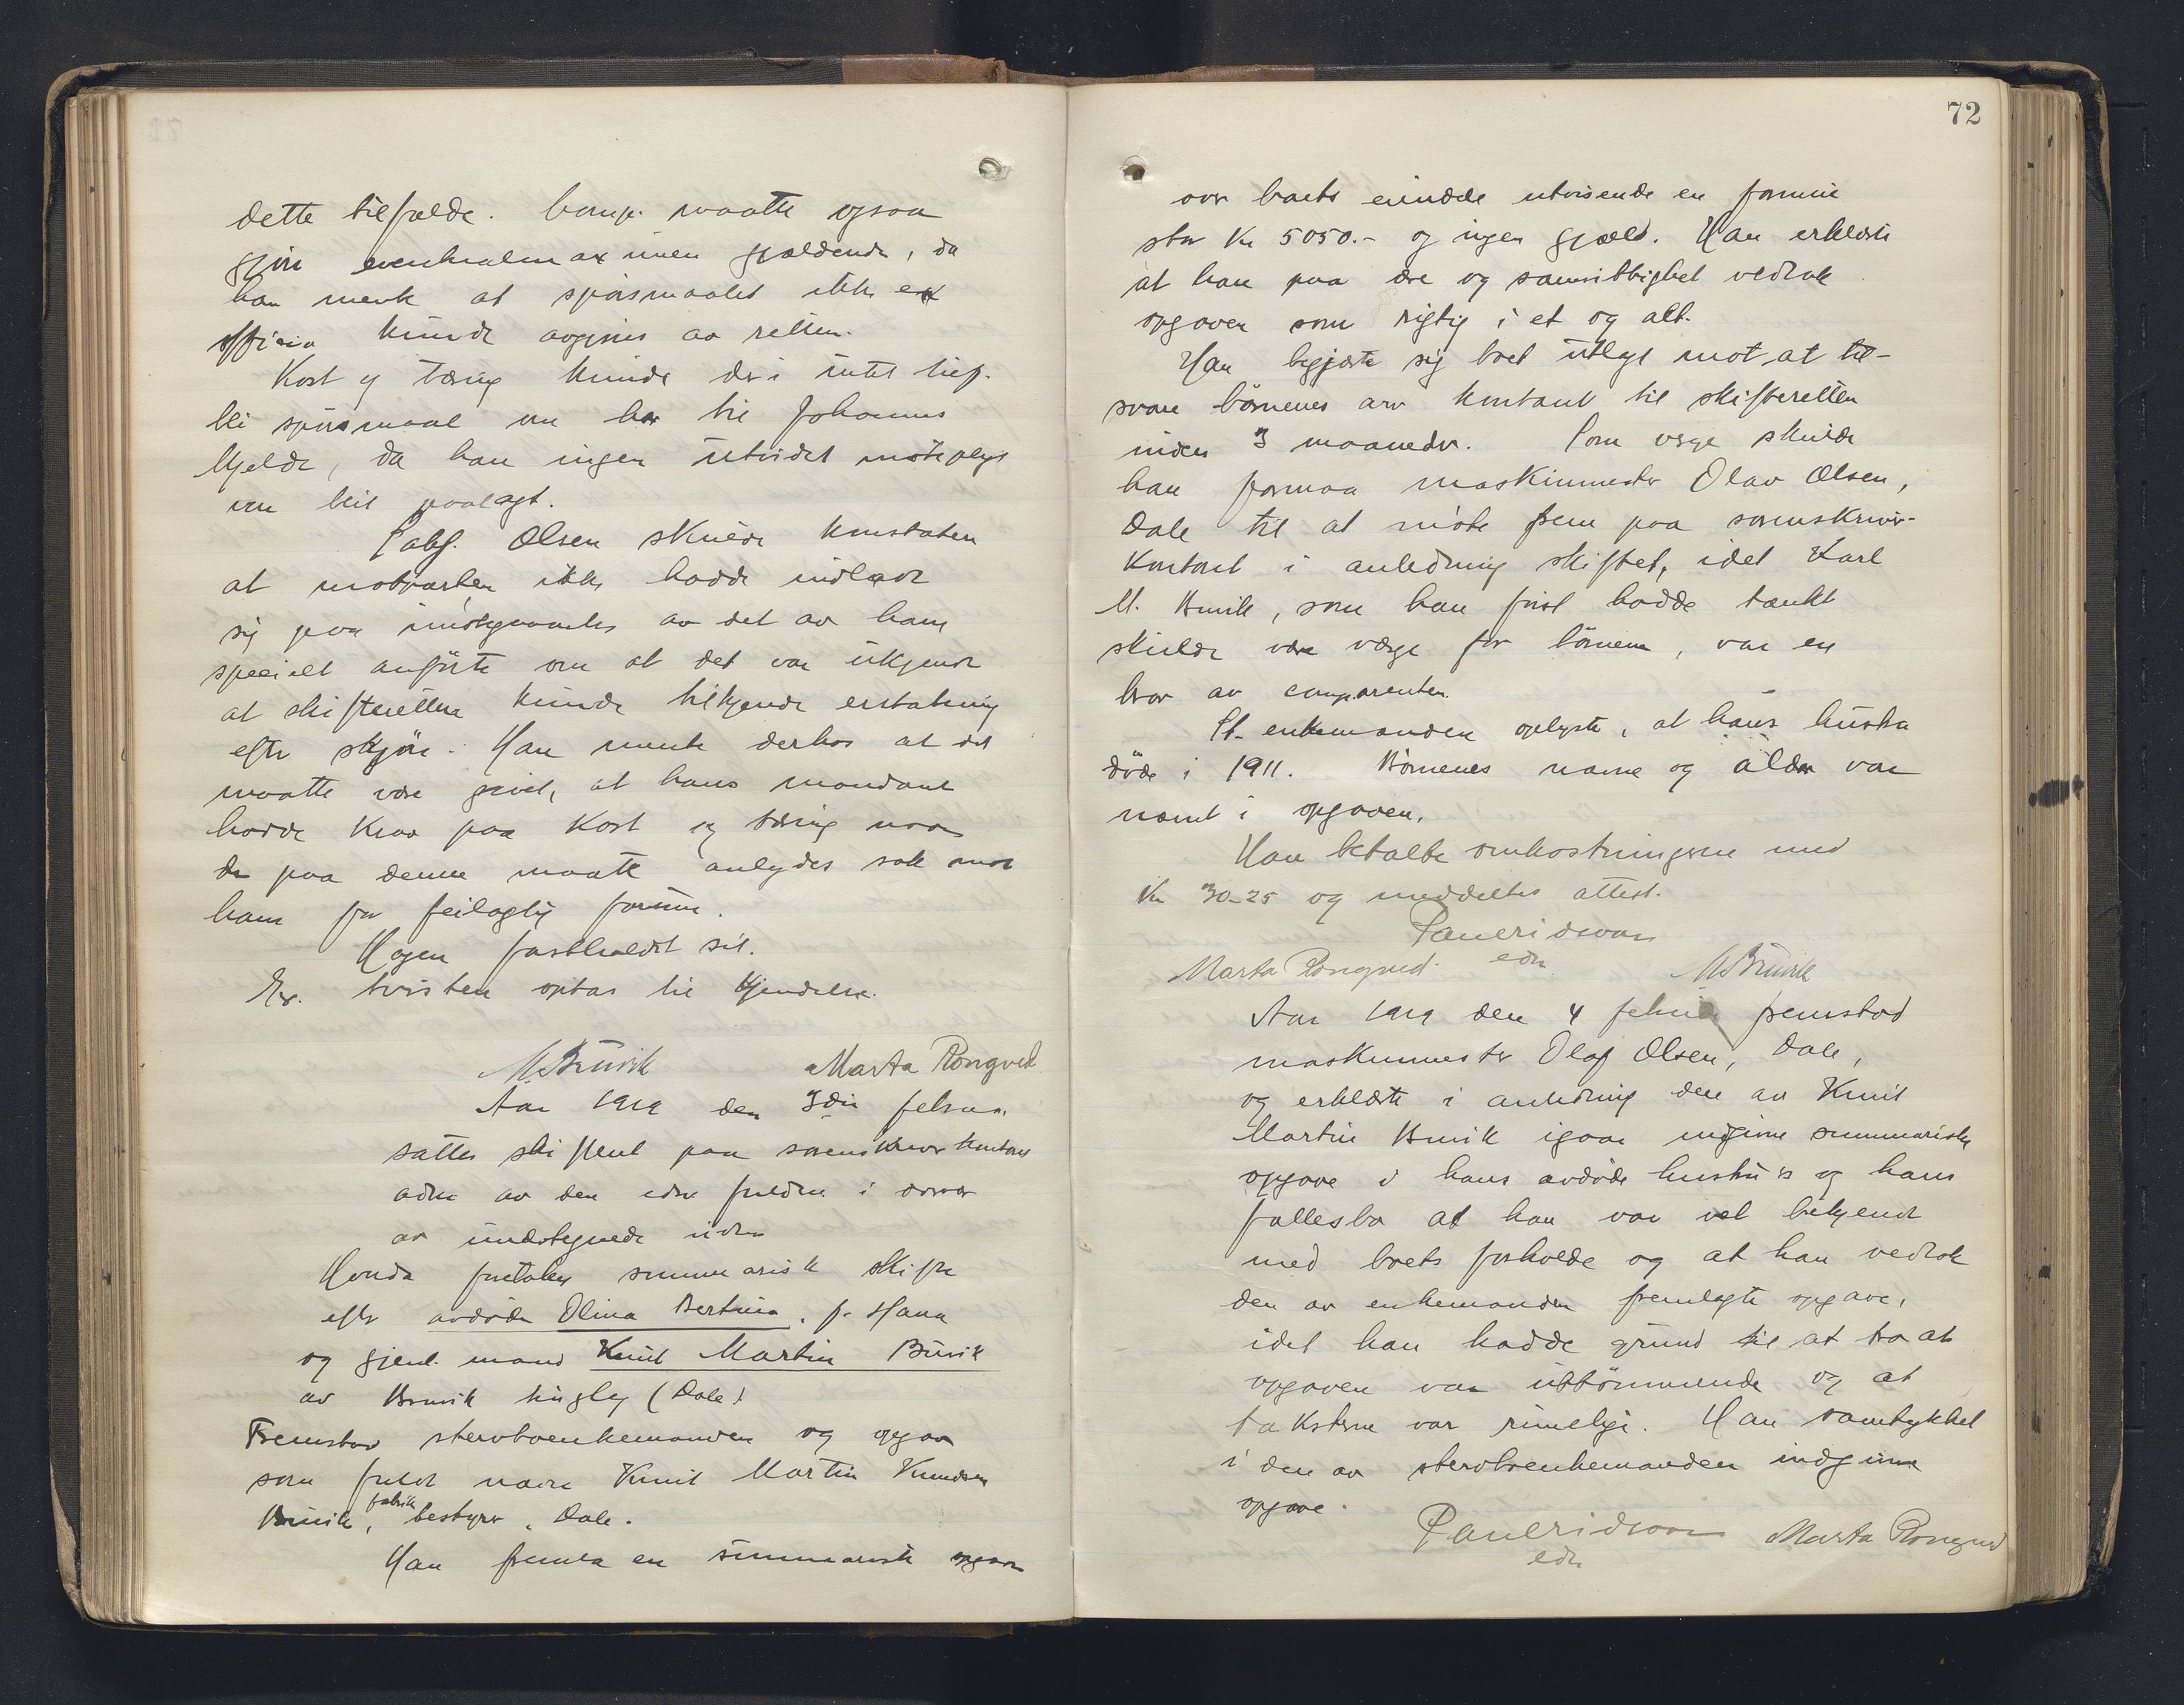 dette tilfælde. Comp. maatte ogsaa
gjøre eventualmaximen gjældende, da
han mente at spørsmaalet ikke ex
officio kunde avgjøres av retten.
Kost og tæring kunde der i intet tilf.
bli spørsmaal om her til Johannes
Mjelde, da han ingen utvidet møtepligt
var blit paalagt.
Sakf. Olsen skulde konstatere
at motparten ikke hadde indladt
sig paa imøtegaaelse av det av ham
specielt anførte om at det var ukjendt
at skifteretten kunde tilkjende erstatning
efter skjøn. Han mente derhos at det
maatte være givet, at hans mandant
hadde krav paa kost og tæring naar
der paa denne maate anlegdes sak mot
ham for feilagtig forum.
Hagen fastholdt sit.
Ex. tvisten optas til kjendelse.
M Bruvik Marta Rongved
Aar 1919 den 3die februar
sattes skifteret paa sorenskriverkontoret
adm. av den edsv. fuldm. i overvær
av undertegnede vidner
Hvorda foretokes summarisk skifte
efter avdøde Olina Bertina, f. Hana
og gjenl. mand Knut Martin Bruvik
av Bruvik tinglag (Dale).
Fremstod stervboenkemanden og opgav
som fuldt navn Knut Martin Knudsen
Bruvik, fabrikbestyrer, Dale.
Han fremla en summarisk opgave
72
over boets eiendele utvisende en formue
stor kr 5050.- og ingen gjæld. Han erklærte
at han paa ære og samvittighet vedtok
opgaven som rigtig i et og alt.
Han begjærte sig boet utlagt mot at til-
svare børnenes arv kontant til skifteretten
inden 3 maaneder. Som verge skulde
han formaa maskinmester Olav Olsen,
Dale til at møte frem paa sorenskriver-
kontoret i anledning skiftet, idet Karl
M. Bruvik, som han først hadde tænkt
skulde være værge for børnene, var en
bror av comparenten.
St. enkemanden oplyste, at hans hustru
døde i 1911. Børnenes navne og alder var
nævnt i opgaven.
Han betalte omkostningerne med
kr 30-25 og meddeltes attest.
Paul Eridsson
edsv.
Marta Rongved. M Bruvik
Aar 1919 den 4 februar fremstod
maskinmester Olaf Olsen, Dale,
og erklærte i anledning den av Knut
Martin Bruvik igaar indgivne summariske
opgave i hans avdøde hustru's og hans
fællesbo at han var vel bekjendt
med boets forholde og at han vedtok
den av enkemanden fremlagte opgave,
idet han hadde grund til at tro at
opgaven var uttømmende og at
taksterne var rimelige. Han samtykket
i den av stervboenkemanden indgivne
opgave.
Paul Eridsson Marta Rongved
edsv.